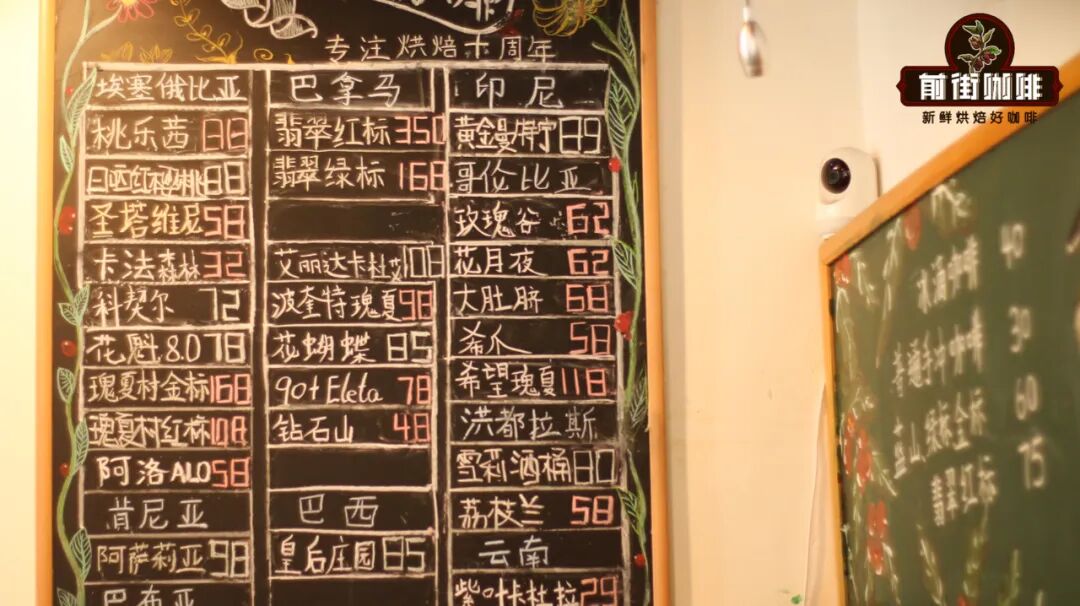 专注烘焙十周年
埃塞俄比亚
桃乐茜 88
日晒红樱桃 88
圣塔维尼 58
卡法森林 32
科契尔 72
花魁8.0 78
瑰夏村金标 168
瑰夏村红标 108
阿洛ALO 58
肯尼亚
阿萨莉亚 98
巴布亚
巴拿马
翡翠红标 350
翡翠绿标 168
艾丽达卡杜艾 108
波奎特瑰夏 98
花蝴蝶 85
90+Eleta 78
钻石山 48
巴西
皇后庄园 65
印尼
黄金曼特宁 89
哥伦比亚
玫瑰谷 62
花月夜 62
大肚脐 68
希爪 58
希望瑰夏 118
洪都拉斯
雪莉酒桶 80
荔枝兰 58
云南
紫叶卡杜拉 29
前街咖啡
新鲜烘焙好咖啡
冰滴咖啡 40
普通手冲咖啡 30
蓝山,绿标,金标 60
翡翠红标 75